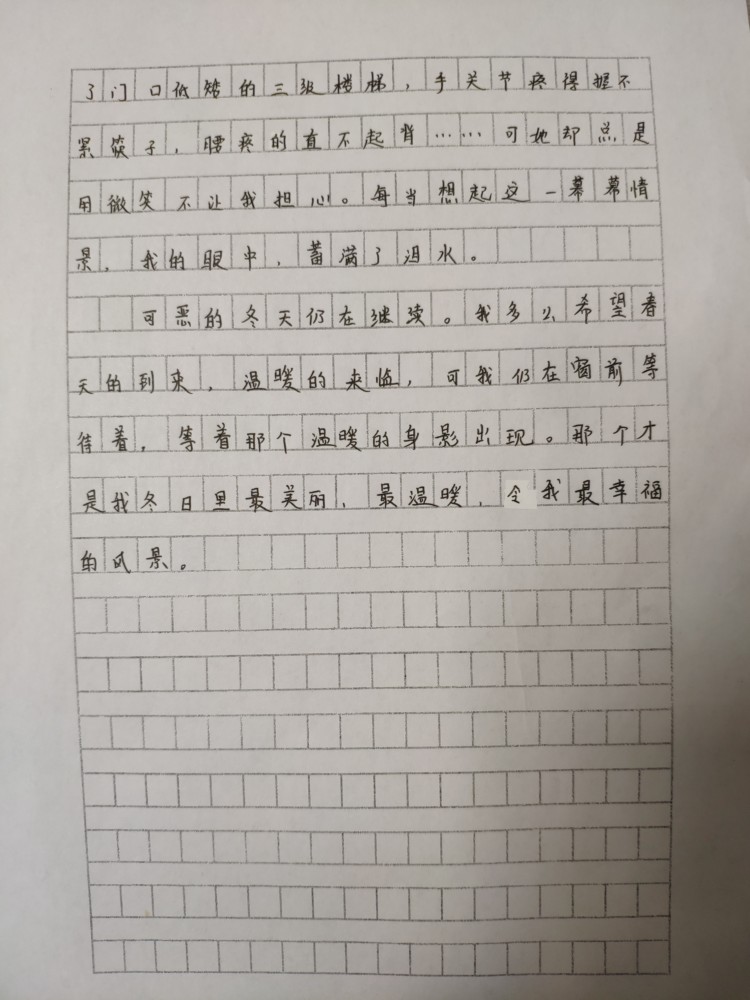 了门口低矮的三级楼梯，手关节疼得握不
累筷子，腰疼的直不起背……可她却总是
用微笑不让我担心。每当想起这一幕幕情
景，我的眼中，蓄满了泪水。
可恶的冬天仍在继续。我多么希望春
天的到来，温暖的来临，可我仍在窗前等
待着，等着那个温暖的身影出现。那个才
是我冬日里最美丽、最温暖、令我最幸福
的风景。